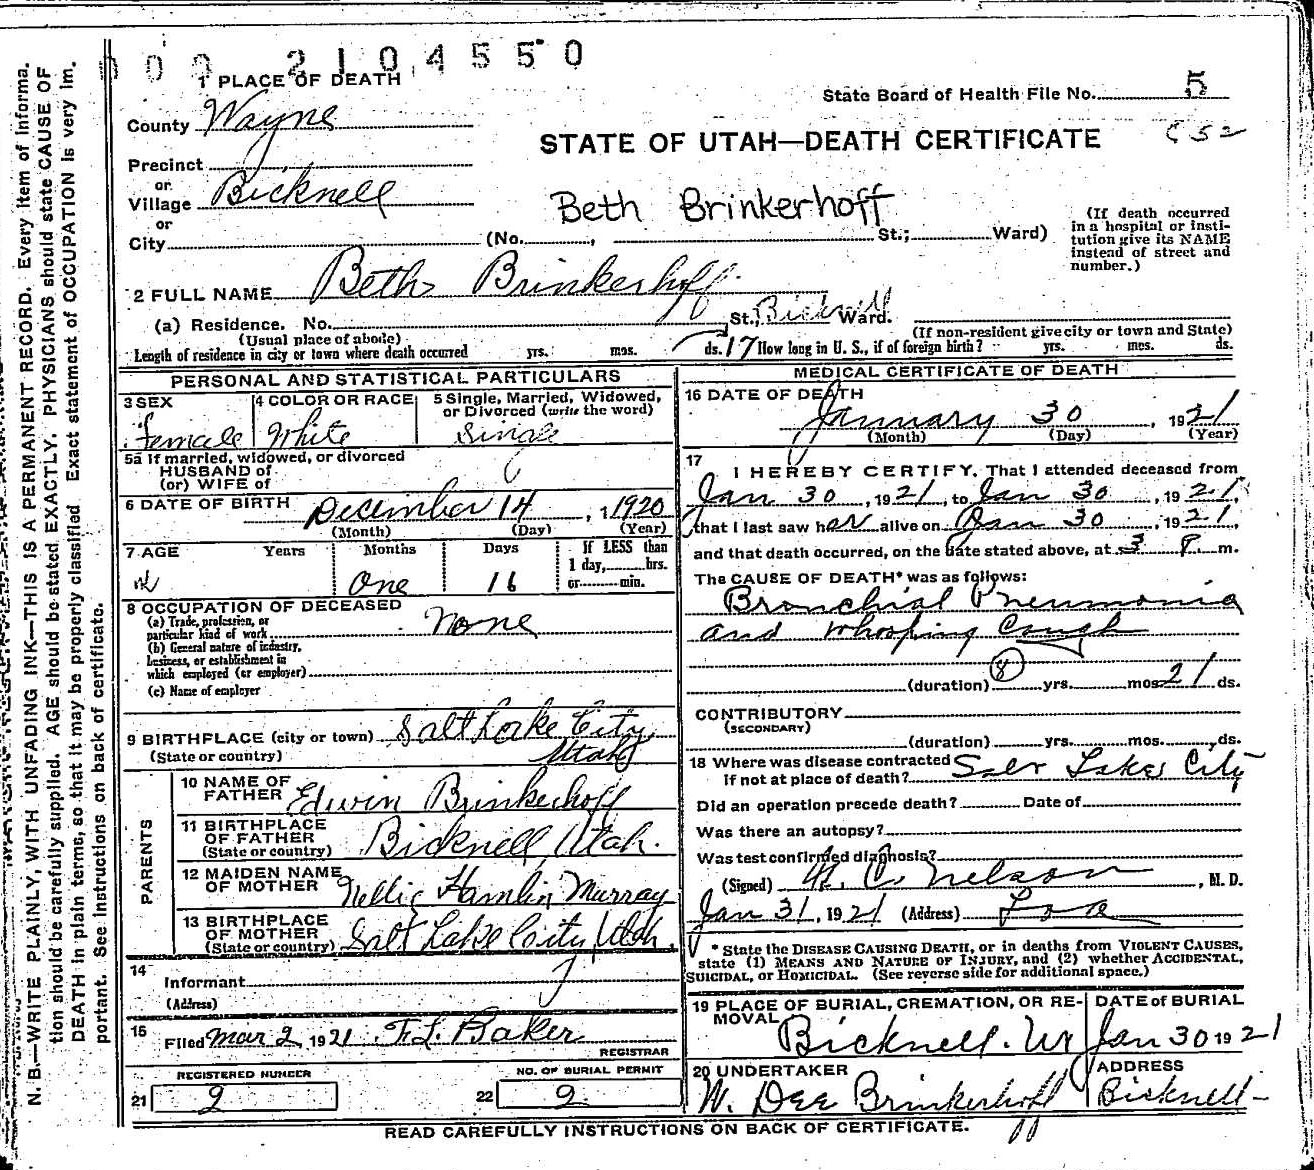 N. B.—WRITE PLAINLY, WITH UNFADING INK—THIS IS A PERMANENT RECORD. Every item of informa-
tion should be carefully supplied. AGE should be stated EXACTLY. PHYSICIANS should state CAUSE OF
DEATH in plain terms, so that it may be properly classified. Exact statement of OCCUPATION is very im-
portant. See instructions on back of certificate.
0 0 0 2 1 0 4 5 5 0
1 PLACE OF DEATH
State Board of Health File No. 5
County Wayne
STATE OF UTAH—DEATH CERTIFICATE
Precinct
or
Village Bicknell
Beth Brinkerhoff
or
City (No. , St.; Ward)
(If death occurred
in a hospital or insti-
tution give its NAME
instead of street and
number.)
2 FULL NAME Beth Brinkerhoff
(a) Residence. No. St., Bicknell Ward.
(Usual place of abode) (If non-resident give city or town and State)
Length of residence in city or town where death occurred yrs. mos. ds. 17 How long in U. S., if of foreign birth? yrs. mos. ds.
PERSONAL AND STATISTICAL PARTICULARS
3 SEX
Female
4 COLOR OR RACE
White
5 Single, Married, Widowed,
or Divorced (write the word)
Single
5a If married, widowed, or divorced
HUSBAND of
(or) WIFE of
6 DATE OF BIRTH December 14 , 1 1920
(Month) (Day) (Year)
7 AGE Years Months Days If LESS than
1 day, hrs.
One 16 or min.
8 OCCUPATION OF DECEASED
(a) Trade, profession, or
particular kind of work None
(b) General nature of industry,
business, or establishment in
which employed (or employer)
(c) Name of employer
9 BIRTHPLACE (city or town) Salt Lake City,
(State or country) Utah
PARENTS
10 NAME OF
FATHER Edwin Brinkerhoff
11 BIRTHPLACE
OF FATHER
(State or country) Bicknell, Utah.
12 MAIDEN NAME
OF MOTHER Nellie Hamlin Murray
13 BIRTHPLACE
OF MOTHER
(State or country) Salt Lake City, Utah
14
Informant
(Address)
15
Filed Mar 2 1921 F. L. Baker
REGISTRAR
REGISTERED NUMBER
21 2
NO. OF BURIAL PERMIT
22 2
MEDICAL CERTIFICATE OF DEATH
16 DATE OF DEATH
January 30 , 1921
(Month) (Day) (Year)
17
I HEREBY CERTIFY, That I attended deceased from
Jan 30 , 1921, to Jan 30 , 1921,
that I last saw her alive on Jan 30 , 1921,
and that death occurred, on the date stated above, at 3 P. m.
The CAUSE OF DEATH* was as follows:
Bronchial Pneumonia
and Whooping Cough
8
(duration) yrs. mos. 21 ds.
CONTRIBUTORY
(SECONDARY)
(duration) yrs. mos. ds.
18 Where was disease contracted
if not at place of death? Salt Lake City
Did an operation precede death? Date of
Was there an autopsy?
Was test confirmed diagnosis?
(Signed) Nelson , M. D.
Jan 31, 1921 (Address) Loa
* State the DISEASE CAUSING DEATH, or in deaths from VIOLENT CAUSES,
state (1) MEANS AND NATURE OF INJURY, and (2) whether ACCIDENTAL,
SUICIDAL, or HOMICIDAL. (See reverse side for additional space.)
19 PLACE OF BURIAL, CREMATION, OR RE-
MOVAL Bicknell. Ut
DATE of BURIAL
Jan 30 1921
20 UNDERTAKER
W. Dee Brinkerhoff
ADDRESS
Bicknell-
READ CAREFULLY INSTRUCTIONS ON BACK OF CERTIFICATE.